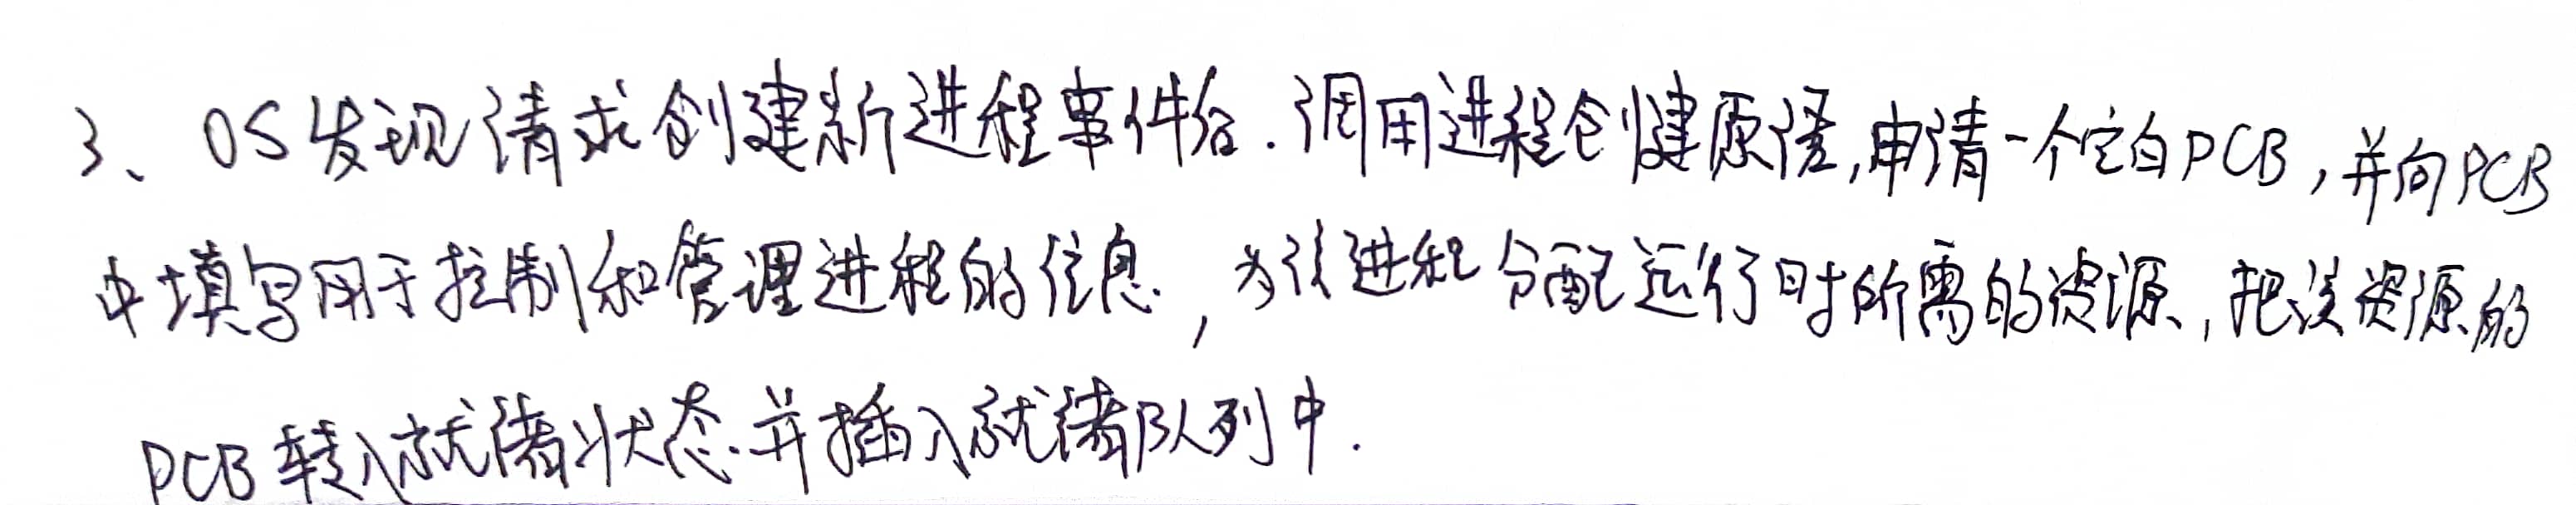 3、OS发现请求创建新进程事件后.调用进程创健原语,申请一个空白PCB,并向PCB
中填写用于控制和管理进程的信息,为该进程分配运行时所需的资源,把该资源的
PCB转入就绪状态.并插入就绪队列中.